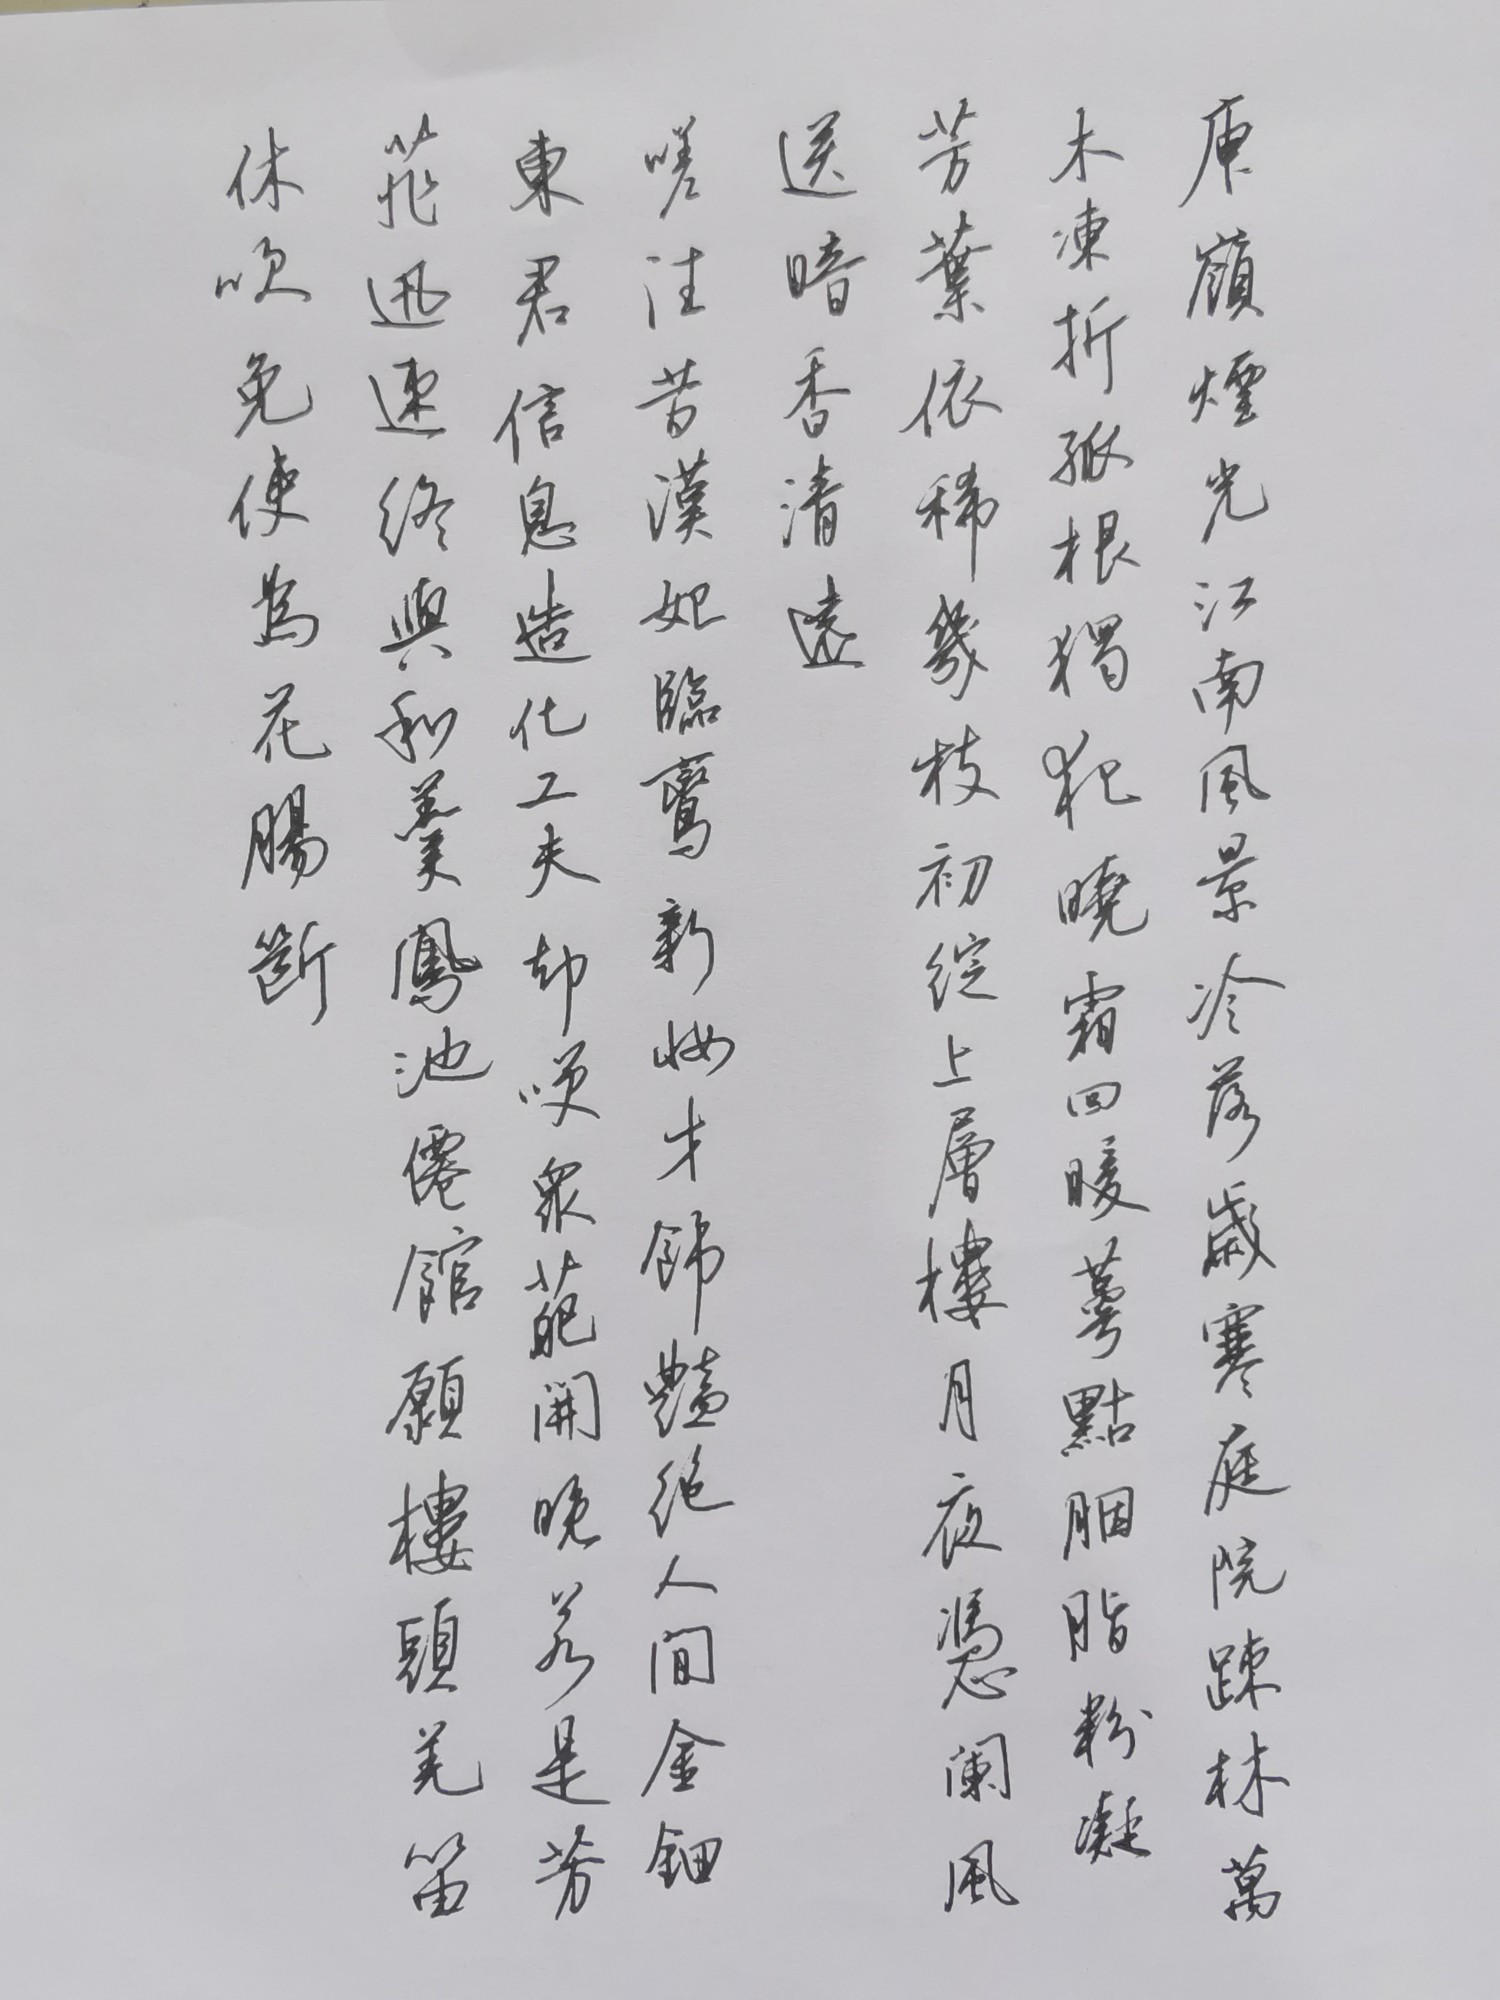 庾嶺煙光江南風景冷落歲寒庭院踈林萬
木凍折孤根獨犯曉霜回暖萼點胭脂粉凝
芳葉依稀幾枝初綻上層樓月夜憑闌風
送暗香清遠
嗟往昔漢妃臨鸞新妝才飾豔絕人間金鈿
東君信息造化工夫却笑眾葩開晚若是芳
菲迅速終與和羹鳳池僊館願樓頭羌笛
休吹免使為花腸斷